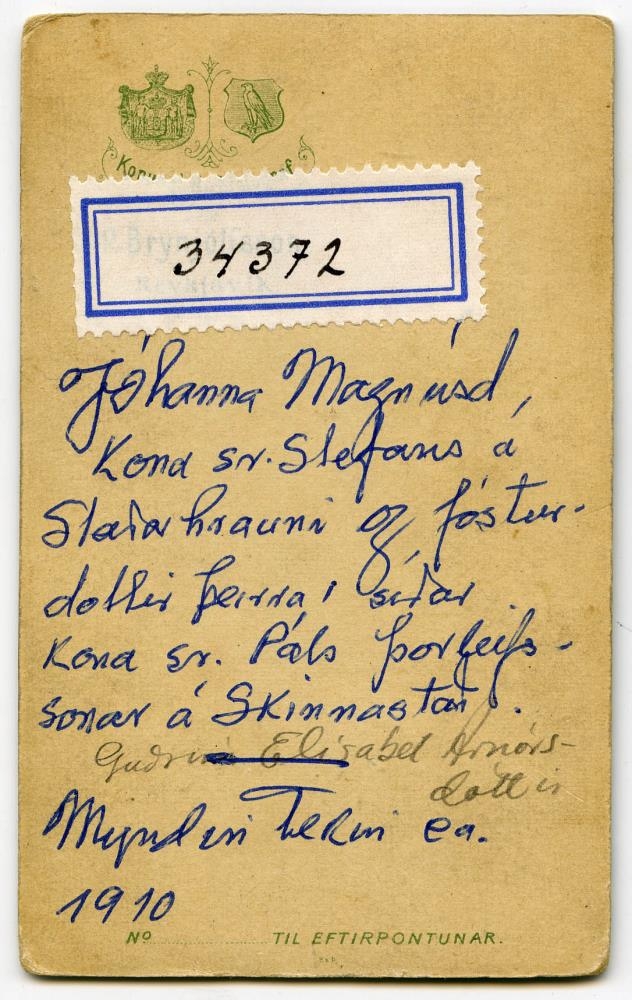 34372
Jóhanna Magnúsd,
Kona sr. Stefans á
Staðarhrauni og fóstur-
dottir þeirra, síðar
Kona sr. Páls þorleifs-
sonar á Skinnastað.
Guðrún Elísabet Arnórs-
dóttir
Myndin tekin ca.
1910
No TIL EFTIRPÖNTUNAR.